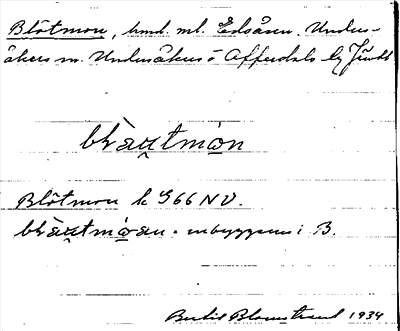 Blötmon, hmd. ml. Edsåsen. Unders-
åkers sn. Undersåkers o Offerdals tg Jämtl
bḷàu̯tmòn
Blötmon k 966 NV.
bḷàu̯tmóan. inbyggarn i B.
Bertil Blomstrand 1934